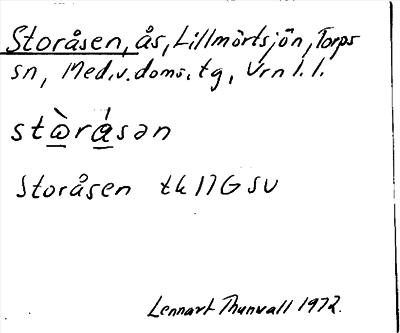 Storåsen, ås, Lillmörtsjön, Torps
sn, Med.v.doms.tg, Vrn l. l.
stὼ̱rá̱sən
Storåsen tk 17G SV
Lennart Thunvall 1972.